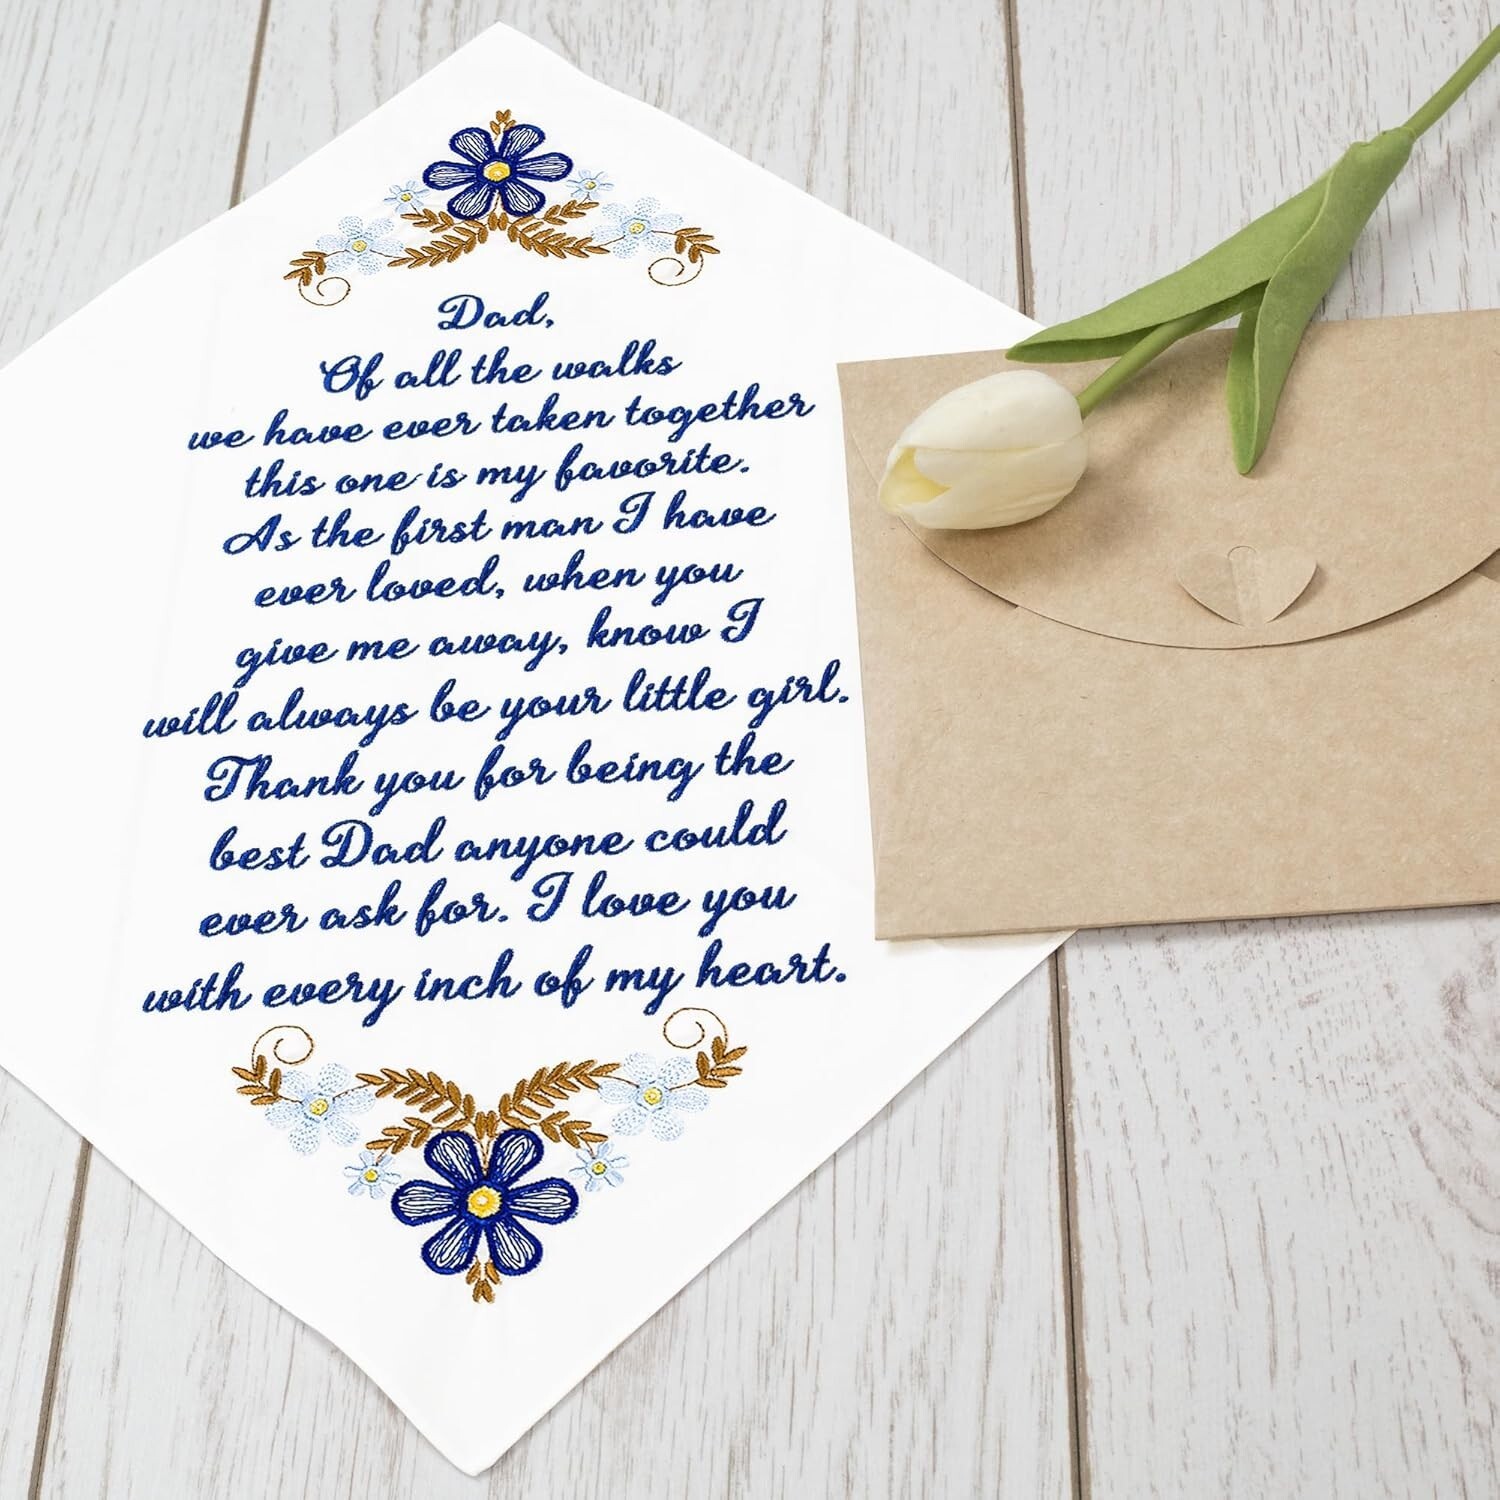 Dad,
Of all the walks
we have ever taken together
this one is my favorite.
As the first man I have
ever loved, when you
give me away, know I
will always be your little girl.
Thank you for being the
best Dad anyone could
ever ask for. I love you
with every inch of my heart.